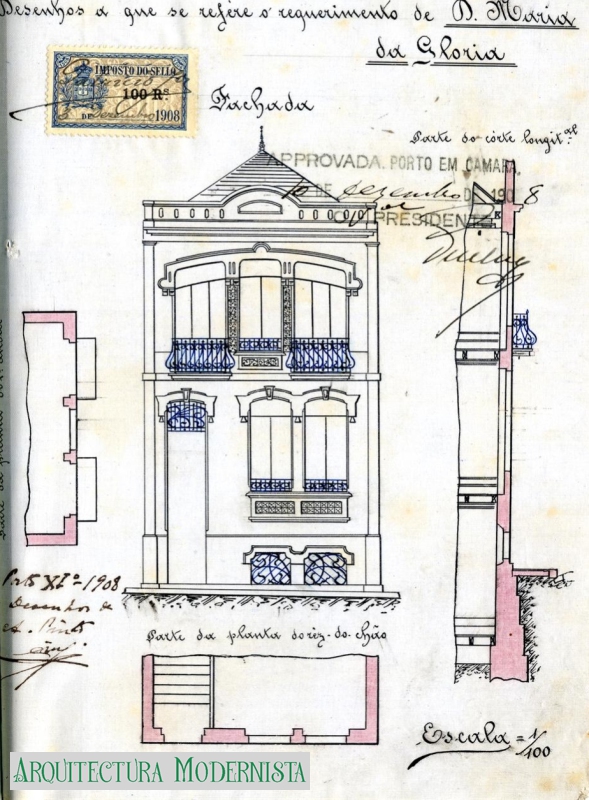 Desenhos a que se refére o requerimento de D. Maria
da Gloria
IMPOSTO DO SELLO
100 RS.
DE 1908
Fachada
Parte do córte longit.al
APPROVADA. PORTO EM CAMARA,
10 DE Dezembro DE 1908
O PRESIDENTE
Porto XI-1908
Desenhos de
Parte da planta do réz-do-chão
Escala = 1/100
ARQUITECTURA MODERNISTA